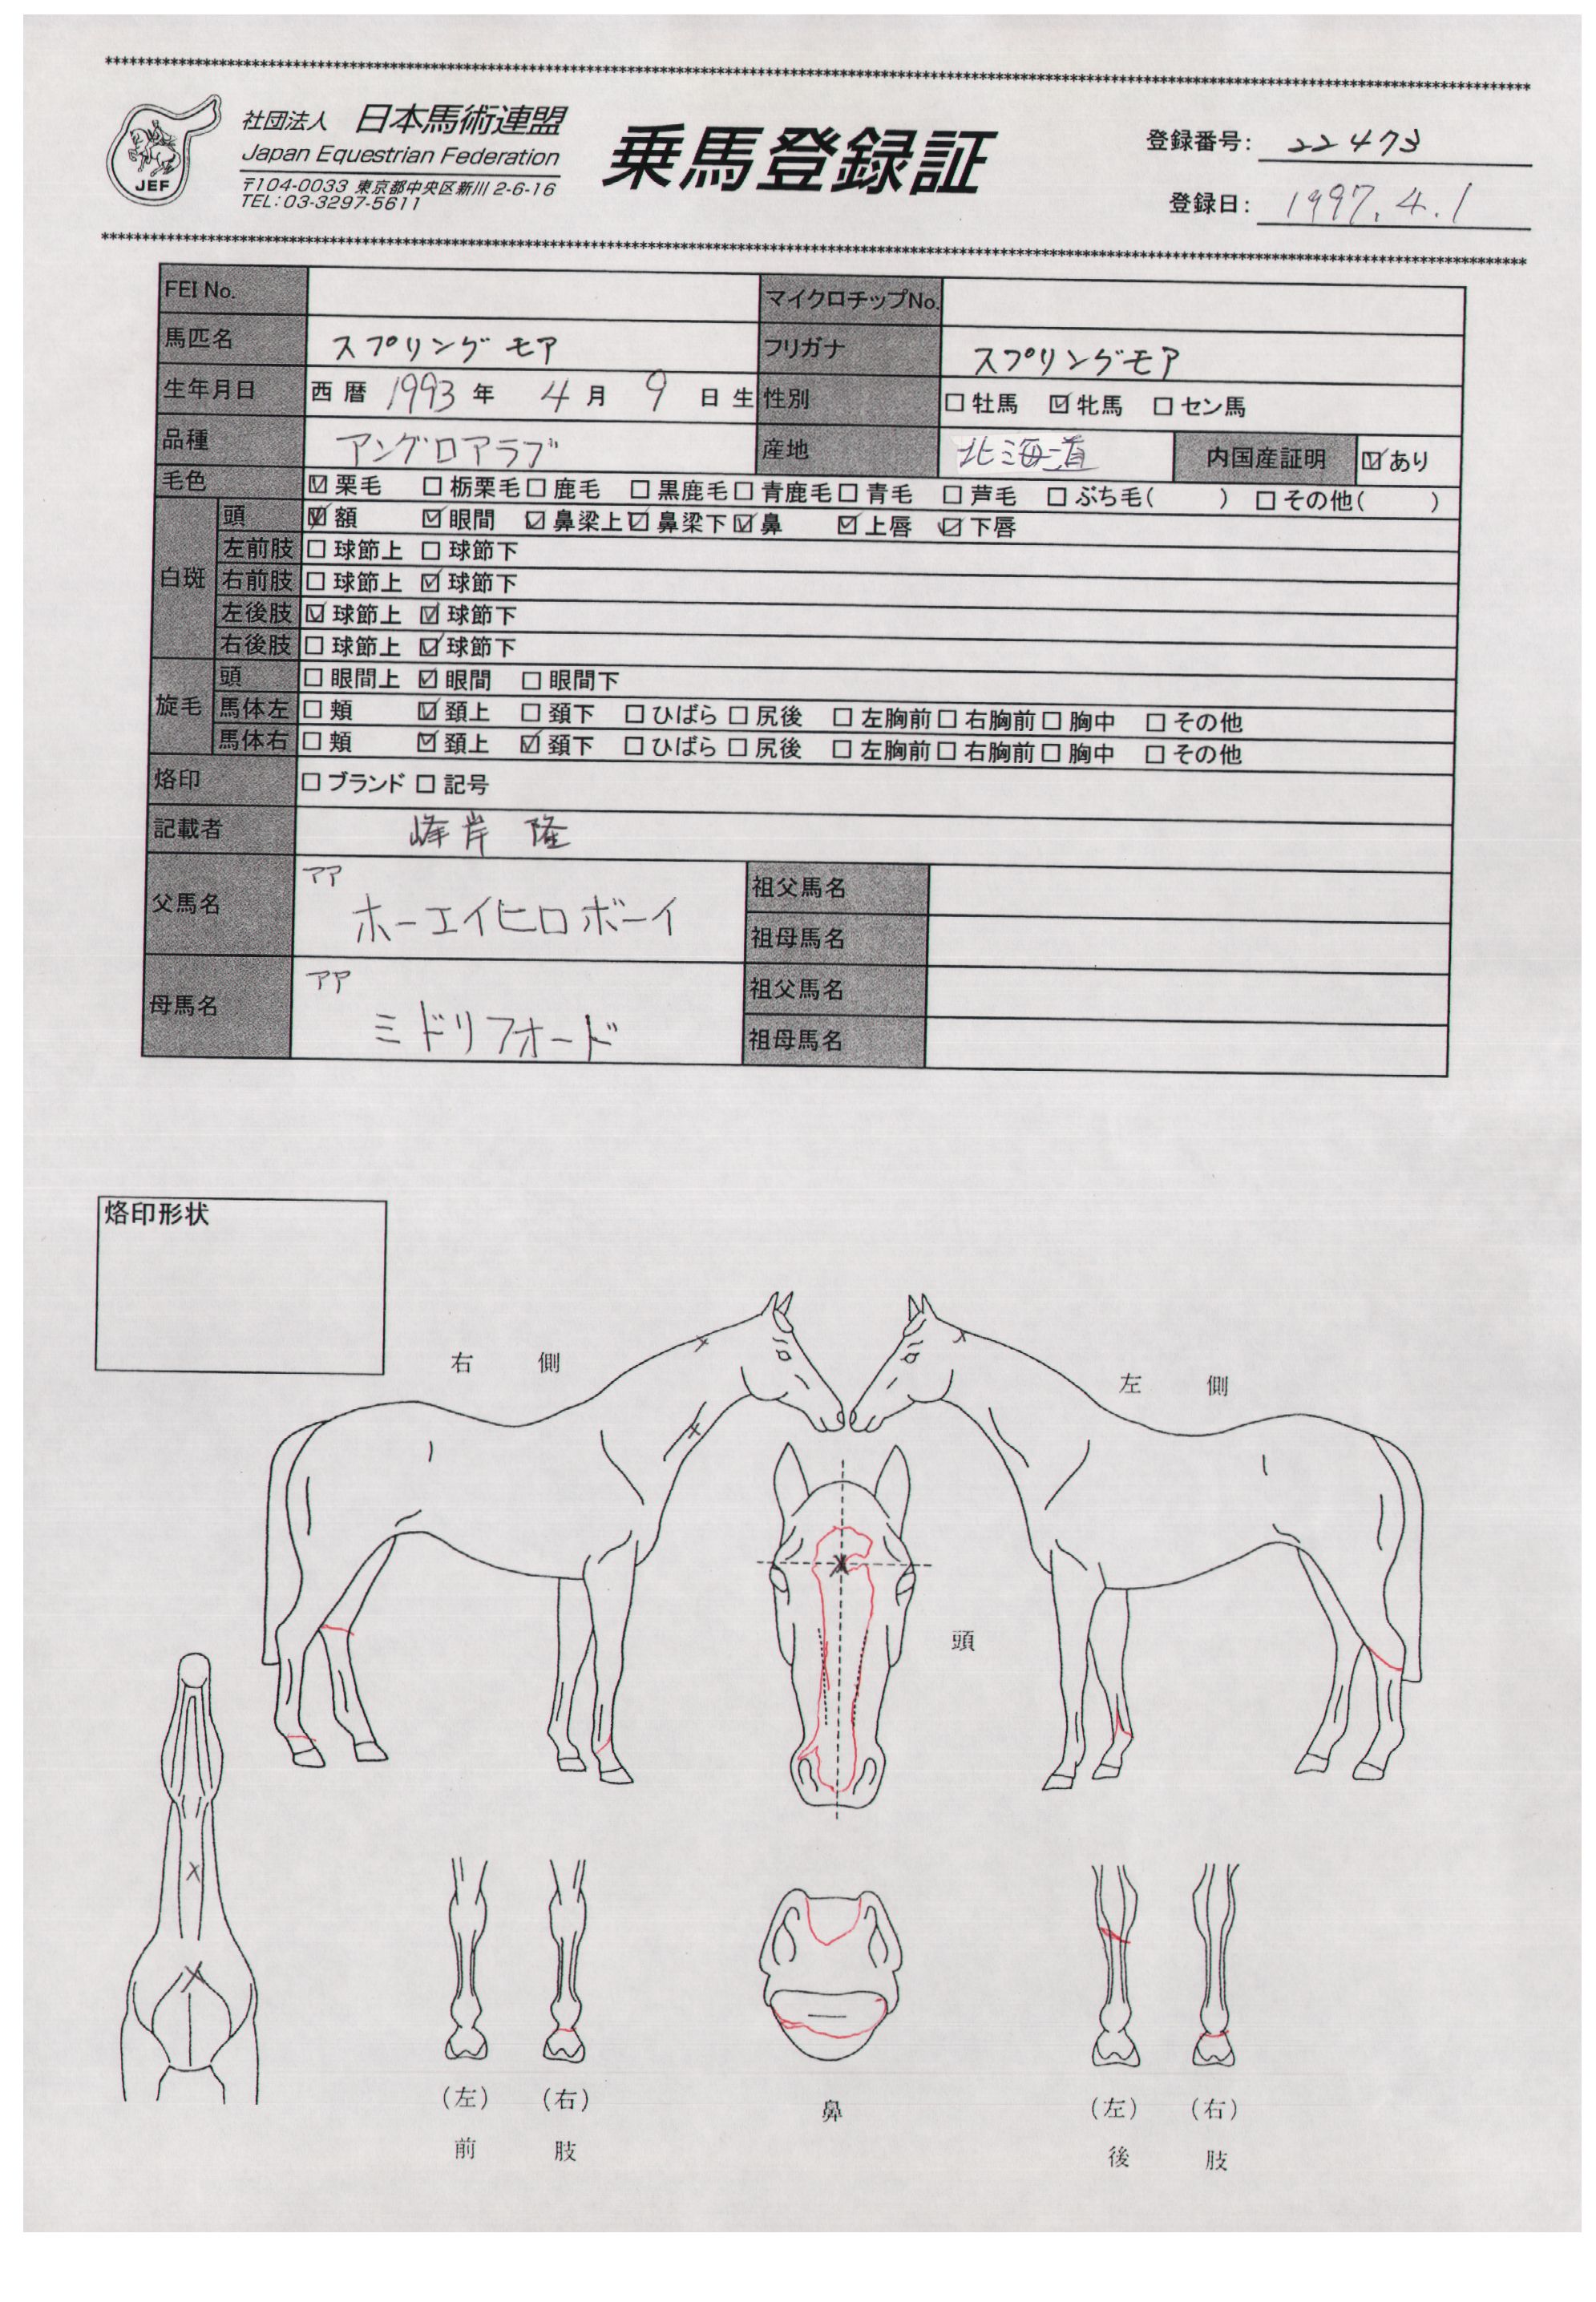 社団法人 日本馬術連盟
Japan Equestrian Federation
〒104-0033 東京都中央区新川 2-6-16
TEL:03-3297-5611
JEF
乗馬登録証
登録番号: 22473
登録日: 1997.4.1
FEI No. マイクロチップNo.
馬匹名 スプリングモア フリガナ スプリングモア
生年月日 西暦 1993 年 4 月 9 日 生 性別 □ 牡馬 ☑ 牝馬 □ セン馬
品種 アングロアラブ 産地 北海道 内国産証明 ☑ あり
毛色 ☑ 栗毛 □ 栃栗毛 □ 鹿毛 □ 黒鹿毛 □ 青鹿毛 □ 青毛 □ 芦毛 □ ぶち毛( ) □ その他( )
白斑 頭 ☑ 額 ☑ 眼間 ☑ 鼻梁上 ☑ 鼻梁下 ☑ 鼻 ☑ 上唇 ☑ 下唇
左前肢 □ 球節上 □ 球節下
右前肢 □ 球節上 ☑ 球節下
左後肢 ☑ 球節上 ☑ 球節下
右後肢 □ 球節上 ☑ 球節下
旋毛 頭 □ 眼間上 ☑ 眼間 □ 眼間下
馬体左 □ 頬 ☑ 頚上 □ 頚下 □ ひばら □ 尻後 □ 左胸前 □ 右胸前 □ 胸中 □ その他
馬体右 □ 頬 ☑ 頚上 ☑ 頚下 □ ひばら □ 尻後 □ 左胸前 □ 右胸前 □ 胸中 □ その他
烙印 □ ブランド □ 記号
記載者 峰岸 隆
父馬名 アア ホーエイヒロボーイ 祖父馬名
祖母馬名
母馬名 アア ミドリフォード 祖父馬名
祖母馬名
烙印形状
右 側
左 側
頭
(左) (右)
前 肢
鼻
(左) (右)
後 肢